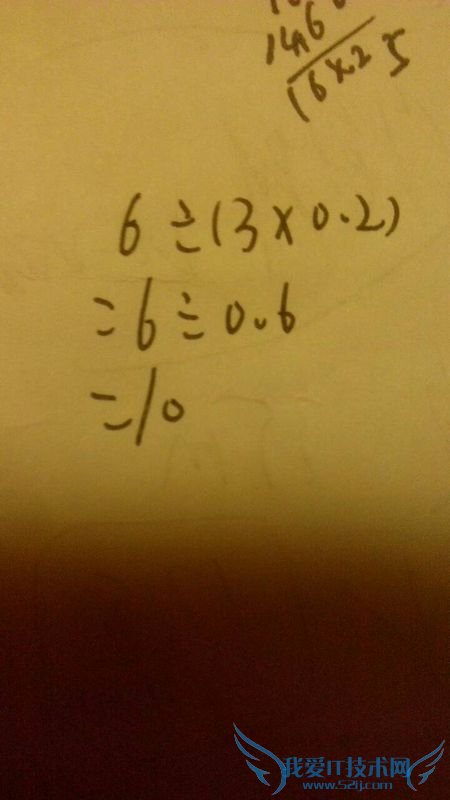 14.6
16×25
6÷(3×0.2)
=6÷0.6
=10
我爱IT技术网
www.52ij.com